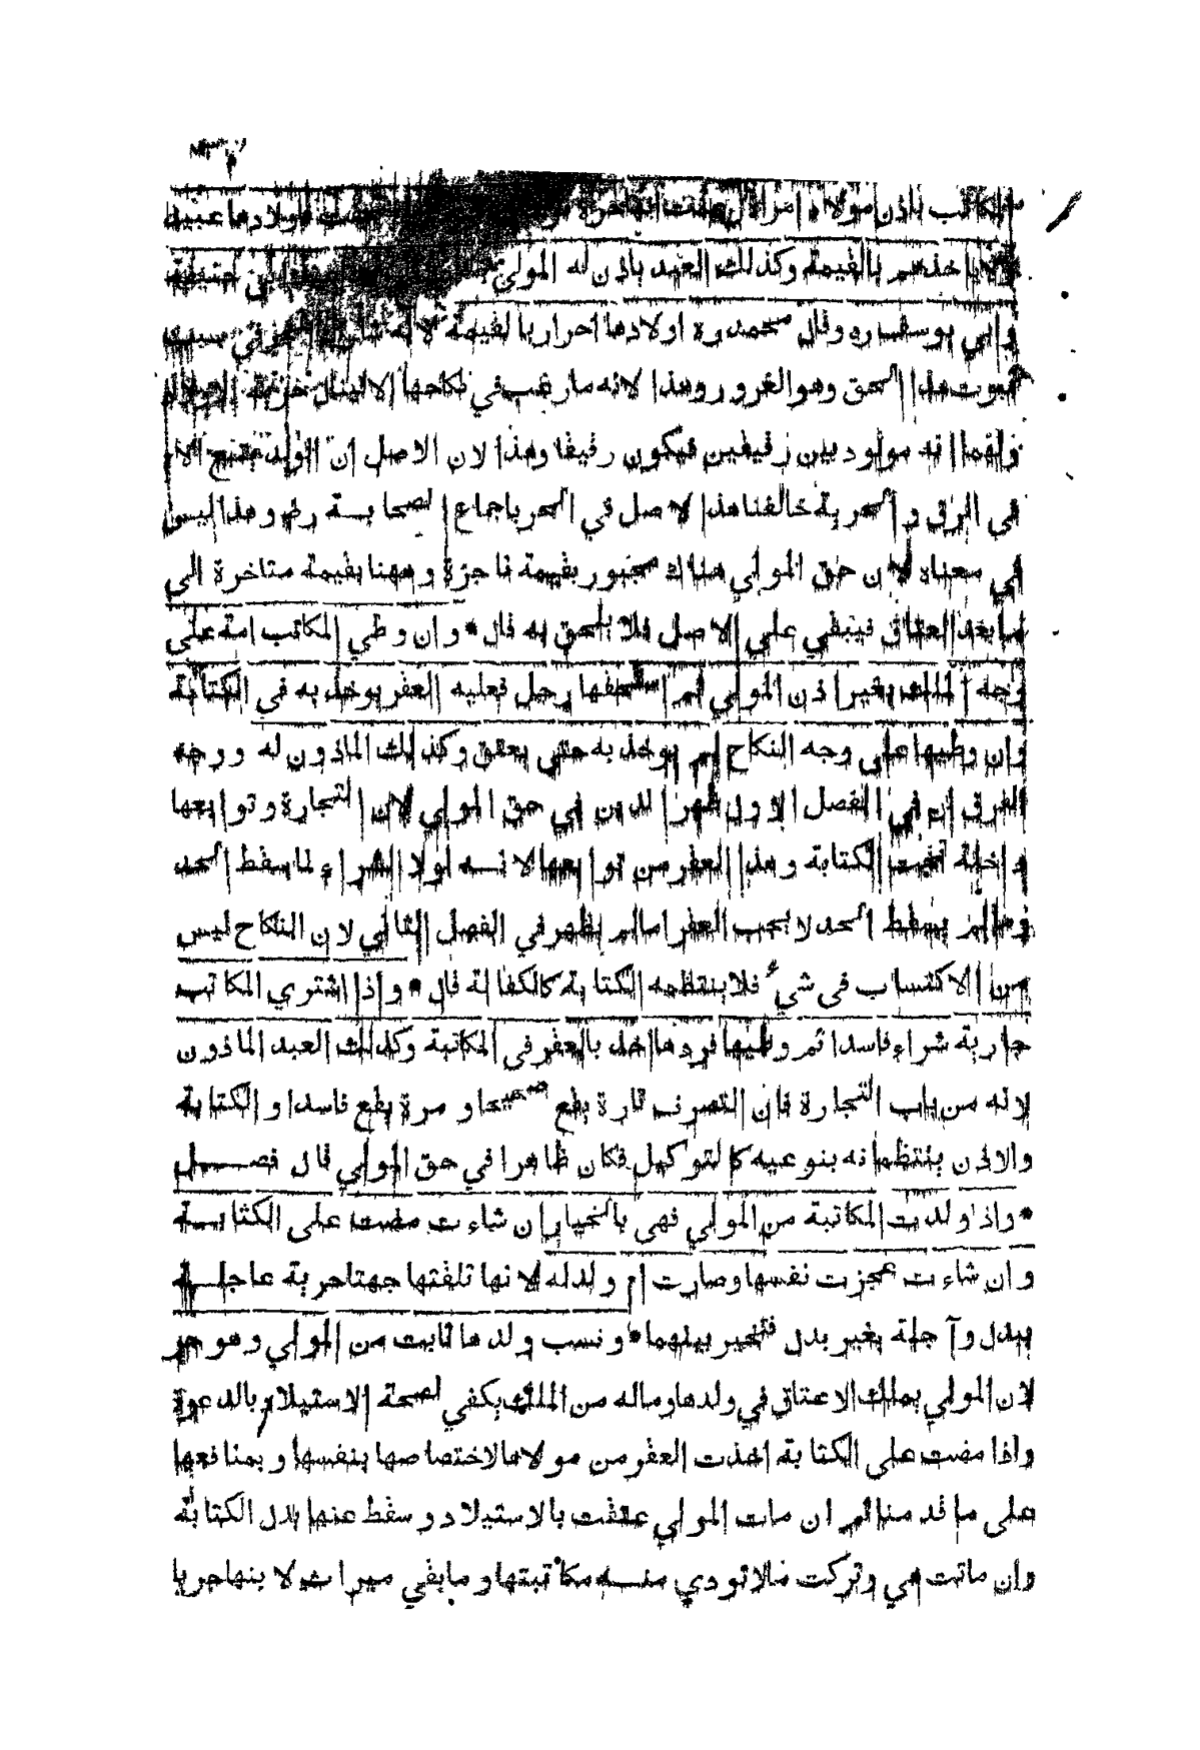 المكاتب باذن مولاه امراة زعمت انها حرة فولدت اولادها عبيد
ولا ياخذهم بالقيمة وكذلك العبد ياذن له المولي
وابي يوسف ره وقال محمد ره اولادها احرار بالقيمة لانه شارك الحر في سبب
ثبوت هذا الحق وهو الغرور وهذا لانه ما رغب في نكاحها الا لينال حرية الاولاد
ولهما انه مولود بين رقيقين فيكون رقيقا وهذا لان الاصل ان الولد يتبع الام
في الرق والحرية خالفنا هذا الاصل في الحر باجماع الصحابة رض وهذا ليس
في معناه لان حق المولي هناك مجبور بقيمة ناجزة وههنا بقيمة متاخرة الي
ما بعد العتاق فيبقي علي الاصل فلا يلحق به قال * وان وطي المكاتب امة علي
وجه الملك بغير اذن المولي ثم استحقها رجل فعليه العقر يوخذ به في الكتابة
وان وطيها علي وجه النكاح لم يوخذ به حتي يعتق وكذلك الماذون له ووجه
الفرق ان في الفصل الاول ظهر الدين في حق المولي لان التجارة وتوابعها
داخلة تحت الكتابة وهذا العقر من توابعها لانه لولا الشراء لما سقط الحد
وما لم يسقط الحد لا يجب العقر اما لم يظهر في الفصل الثاني لان النكاح ليس
من الاكتساب في شيء فلا ينتظمه الكتابة كالكفالة قال * واذا اشتري المكاتب
جارية شراء فاسدا ثم وطيها فردها اخذ بالعقر في المكاتبة وكذلك العبد الماذون
لانه من باب التجارة فان التصرف تارة يقع صحيحا ومرة يقع فاسدا والكتابة
والاذن ينتظمانه بنوعيه كالتوكيل فكان ظاهرا في حق المولي قال فصل
* واذا ولدت المكاتبة من المولي فهي بالخيار ان شاءت مضت علي الكتابة
وان شاءت عجزت نفسها وصارت ام ولد له لانها تلقتها جهتا حرية عاجلة
ببدل وآجلة بغير بدل فتخير بينهما * ونسب ولدها ثابت من المولي وهو حر
لان المولي يملك الاعتاق في ولدها وماله من الملك يكفي لصحة الاستيلاد بالدعوة
واذا مضت علي الكتابة اخذت العقر من مولاها لاختصاصها بنفسها وبمنافعها
علي ما قدمنا ثم ان مات المولي عتقت بالاستيلاد وسقط عنها بدل الكتابة
وان ماتت هي وتركت مالا تودي منه مكاتبتها وما بقي ميراث لابنها جريا